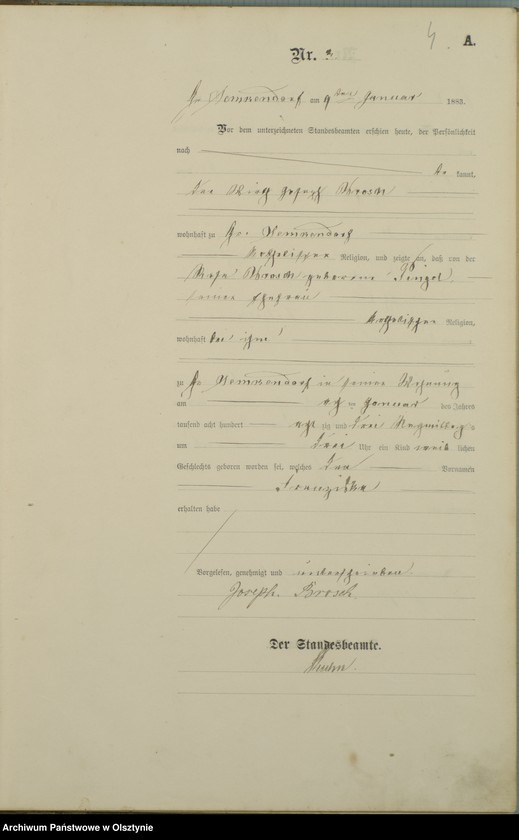 4. A.
Nr. 3
Gr. Lemkendorf am 9ten Januar 1883.
Vor dem unterzeichneten Standesbeamten erschien heute, der Persönlichkeit
nach
be kannt,
der Wirth Joseph Brosch
wohnhaft zu Gr. Lemkendorf
katholischer Religion, und zeigte an, daß von der
Rosa Brosch geborene
seiner Ehefrau
katholischer Religion,
wohnhaft bei ihm
zu Gr. Lemkendorf in seiner Wohnung
am Januar des Jahres
tausend acht hundert acht zig und drei Nachmittags
um drei Uhr ein Kind weib lichen
Geschlechts geboren worden sei, welches den Vornamen
Franziska
erhalten habe
Vorgelesen, genehmigt und unterschrieben
Joseph Brosch
Der Standesbeamte.
Archiwum Państwowe w Olsztynie